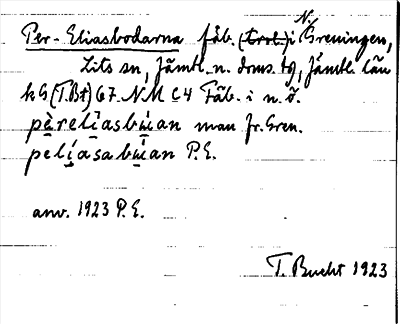 Per-Eliasbodarna fäb. (trol.) i N. Greningen,
Lits sn, Jämtl. n. doms. tg, Jämtl. län
kG (T.Bt) 67. NM C4 Fäb. i n. ö.
pèrelìasbùan man fr. Gren.
pelíasabùan P.E.
anv. 1923 P.E.
T. Bucht 1923